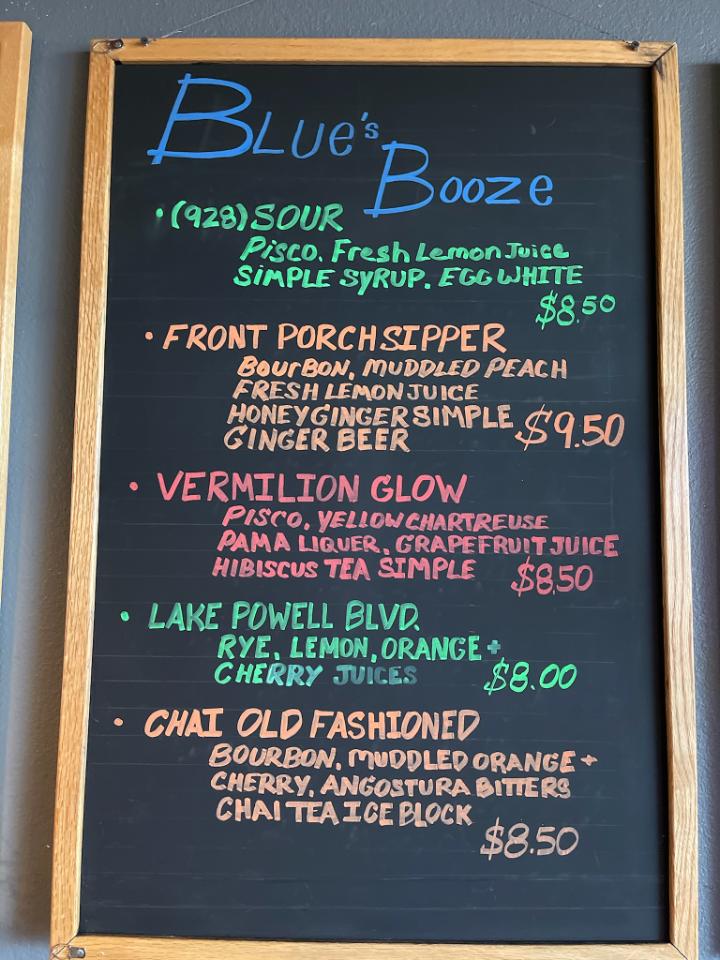 BLUe's
Booze
• (928) SOUR
PISCO. Fresh Lemon Juice
SIMPLE SYRUP. EGG WHITE
$8.50
• FRONT PORCH SIPPER
BOURBON, MUDDLED PEACH
FRESH LEMON JUICE
HONEY GINGER SIMPLE $9.50
GINGER BEER
• VERMILION GLOW
PISCO. YELLOW CHARTREUSE
PAMA LIQUER. GRAPEFRUIT JUICE
HIBISCUS TEA SIMPLE $8.50
• LAKE POWELL BLVD.
RYE, LEMON, ORANGE +
CHERRY JUICES $8.00
• CHAI OLD FASHIONED
BOURBON, MUDDLED ORANGE +
CHERRY, ANGOSTURA BITTERS
CHAI TEA ICE BLOCK
$8.50